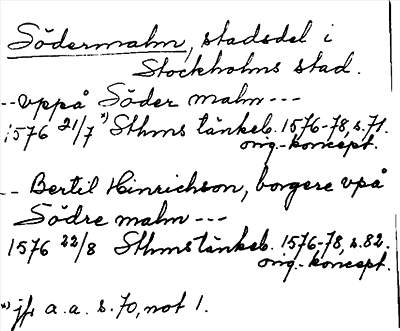 Södermalm, stadsdel i
Stockholms stad.
--vppå Söder malm---
1576 21/7 *) Sthms tänkeb. 1576-78, s.71.
orig.-koncept.
-- Bertil Hinrichson, borgere vpå
Södre malm---
1576 22/8 Sthms tänkeb. 1576-78, s.82.
orig.-koncept.
*) jfr a.a. s.70, not 1.